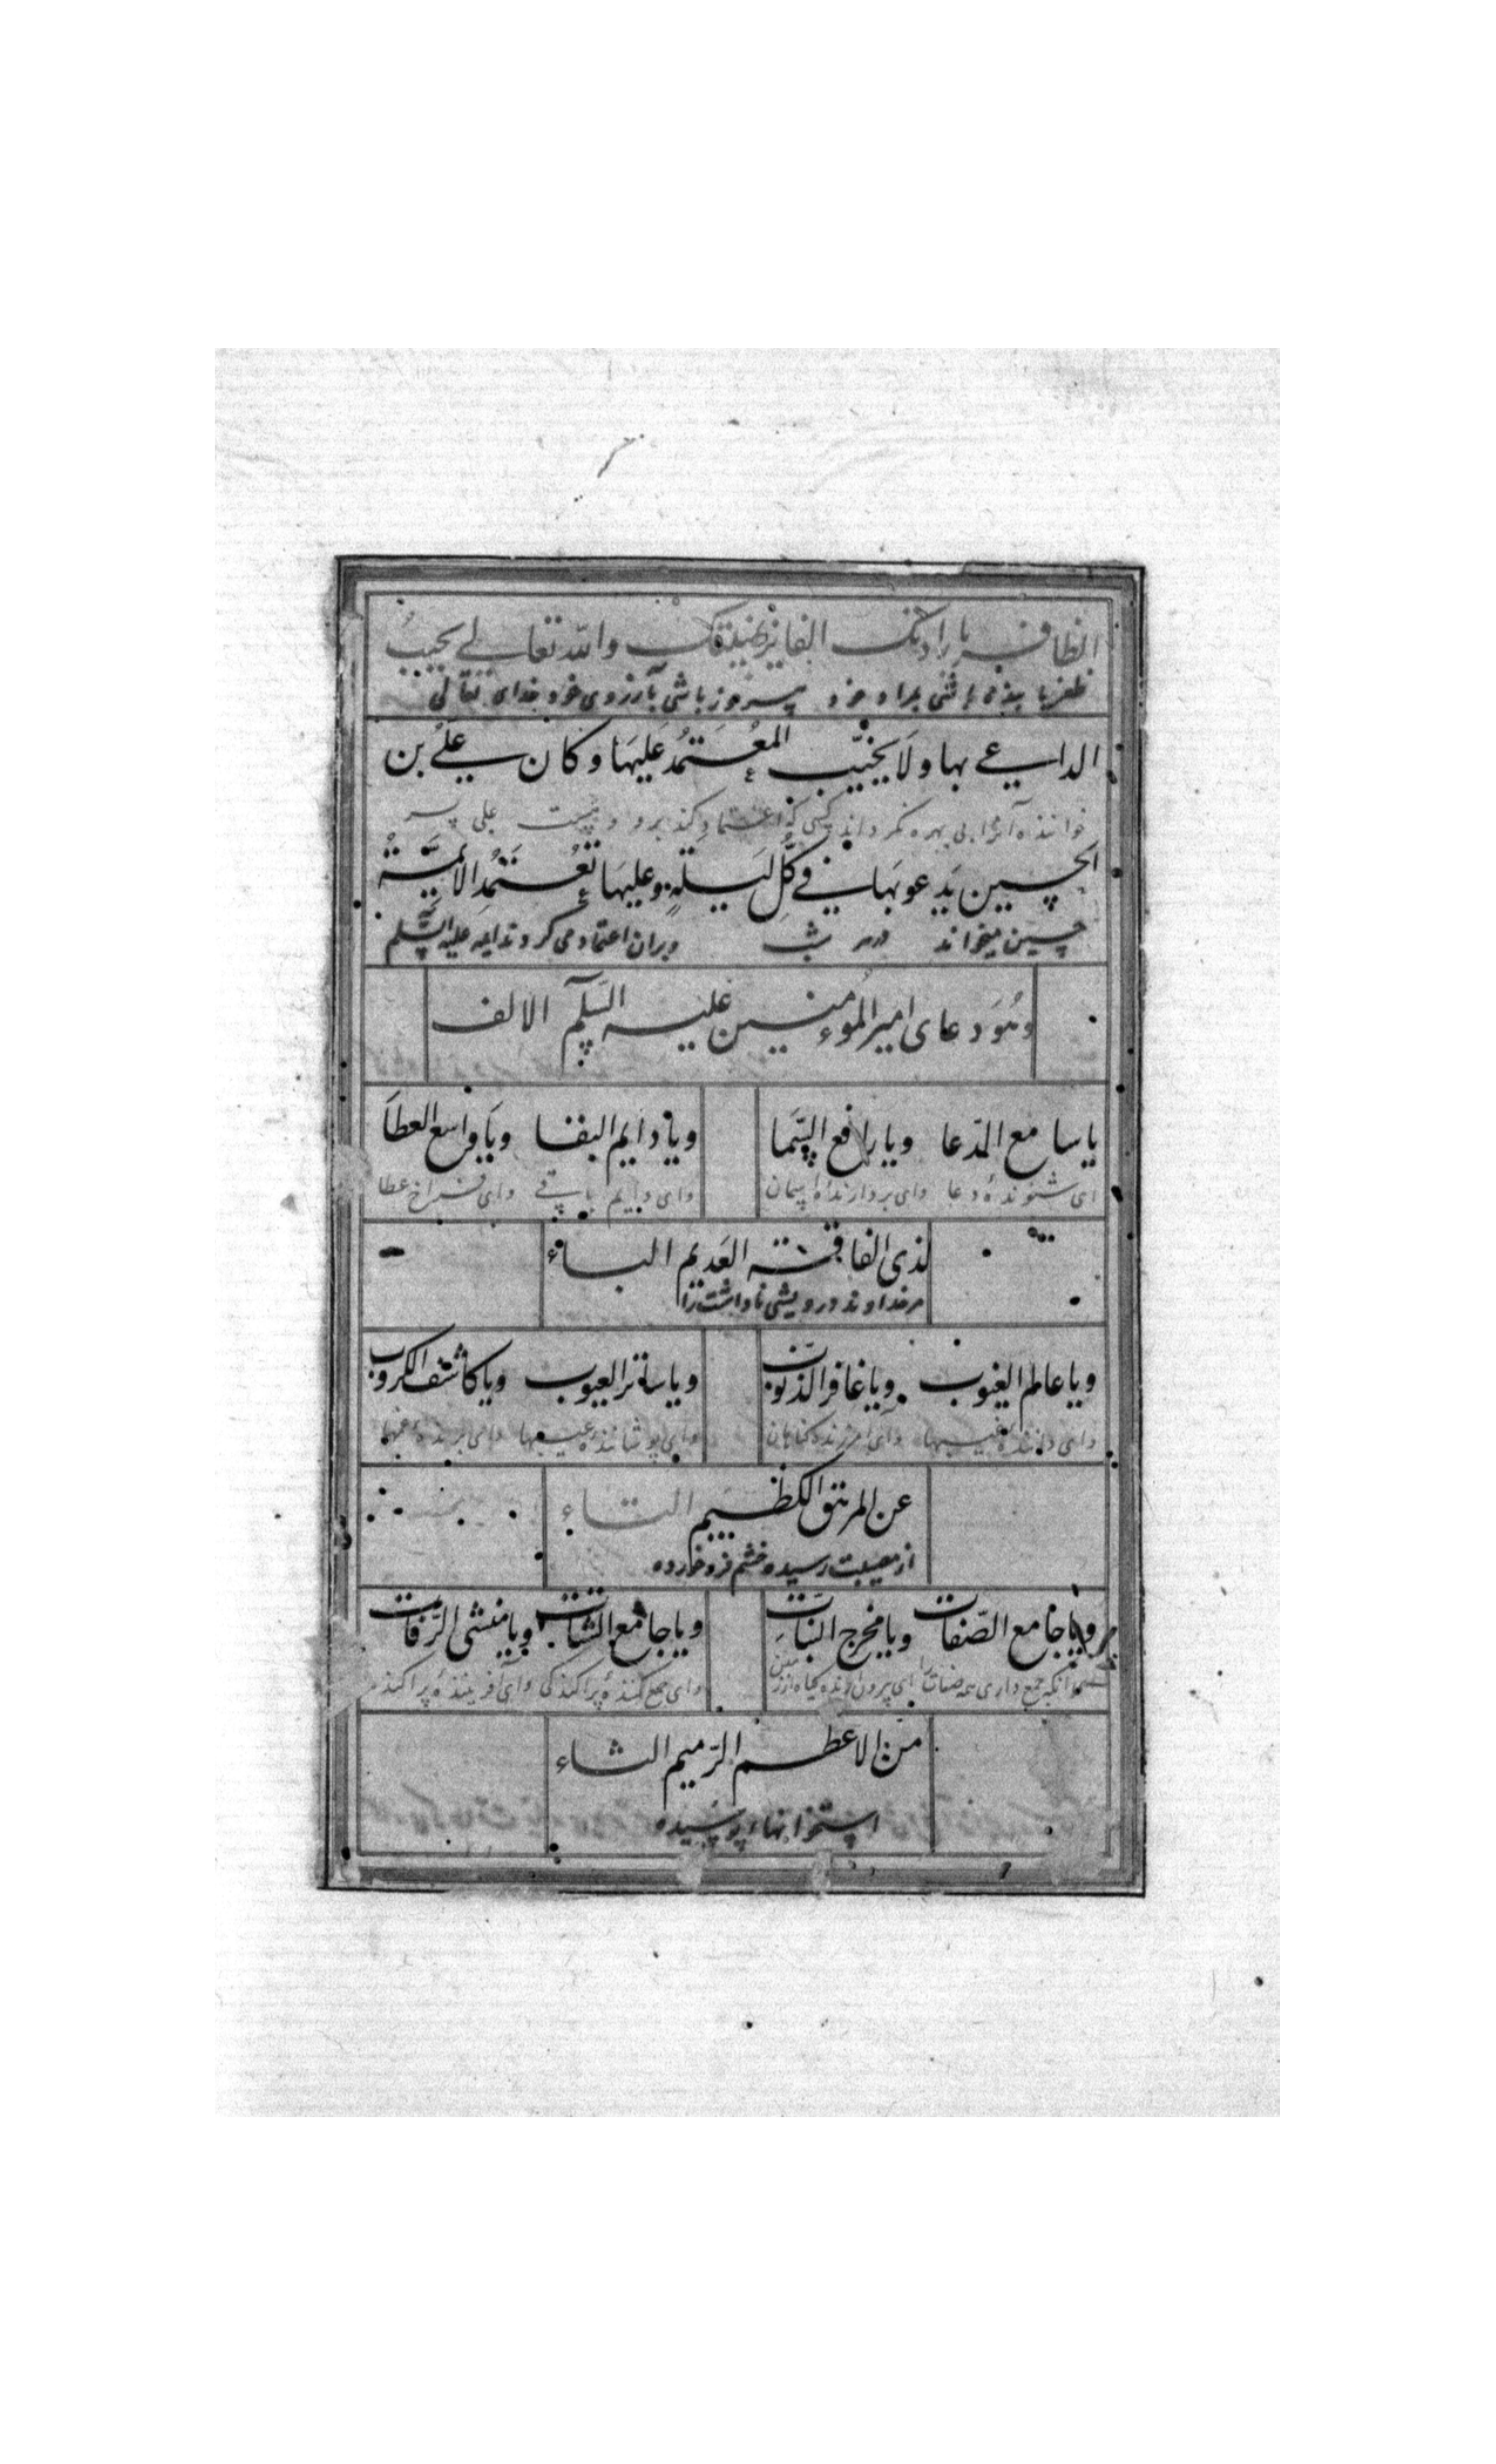 الظافر بارادتک الفایز بطلبتک والله تعالی لا یخیب
ظفر یابنده باشی بمراد خود پیروز باشی بآرزوی خود خدای تعالی
الداعی بها ولا یخیّب المعُتَمدُ عَلیهَا وکان علیُ بن
خواننده آنرا بی بهره نکرداند کسی که اعتماد کند برو علی پسر
الحسین یَدعو بهَا فی کُلّ لیَلَةٍ وعلیهَا تعُتَمدُ الائمّة
حسین میخواند در شب وبران اعتماد می کردند ایمه علیه السّلم
وهُوَ دعای امیر الموُمنین علیه السّلم الالف
یا سامع الدّعا ویا رافع السّمَا ویا دایم البقا ویَا واسع العطَا
ای شنوندهٔ دعا وای بردارندهٔ اسمان وای دایم باقی وای فراخ عطا
لذی الفاقة العَدیم الباء
مر خداوند درویشی ناداشت را
ویا عالم الغیوب ویا غافر الذنّوب ویا ساتر العیوب ویا کاشف الکروب
وای دانندهٔ غیبها وای امرزنده کناهان وای پوشانندهٔ عیبها وای برندهٔ غمها
عن المرتق الکظیم التاء
از مصیبت رسیده خشم فرو خورده
ویا جامع الصّفات ویا مخرج النبّات ویا جامع الشتات ویا منشی الرّفات
انکه جمع داری همه صفات را ای بیرون ارنده کیاه از زمین وای جمع کنندهٔ پراکندکی وای افرینندهٔ پراکنده
منَ الاعظم الرّمیم الثاء
استخوانهاء پوسیده